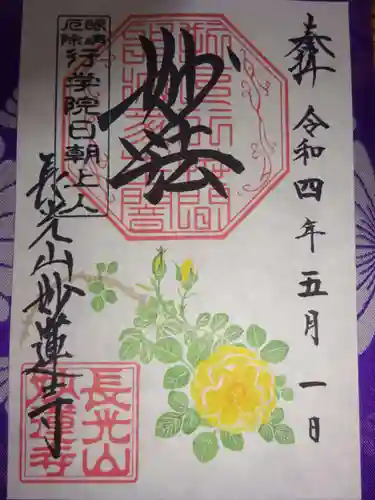 奉拝 令和四年五月一日
妙法
眼病
厄除
行学院日朝上人
長光山妙蓮寺
長光山
妙蓮寺